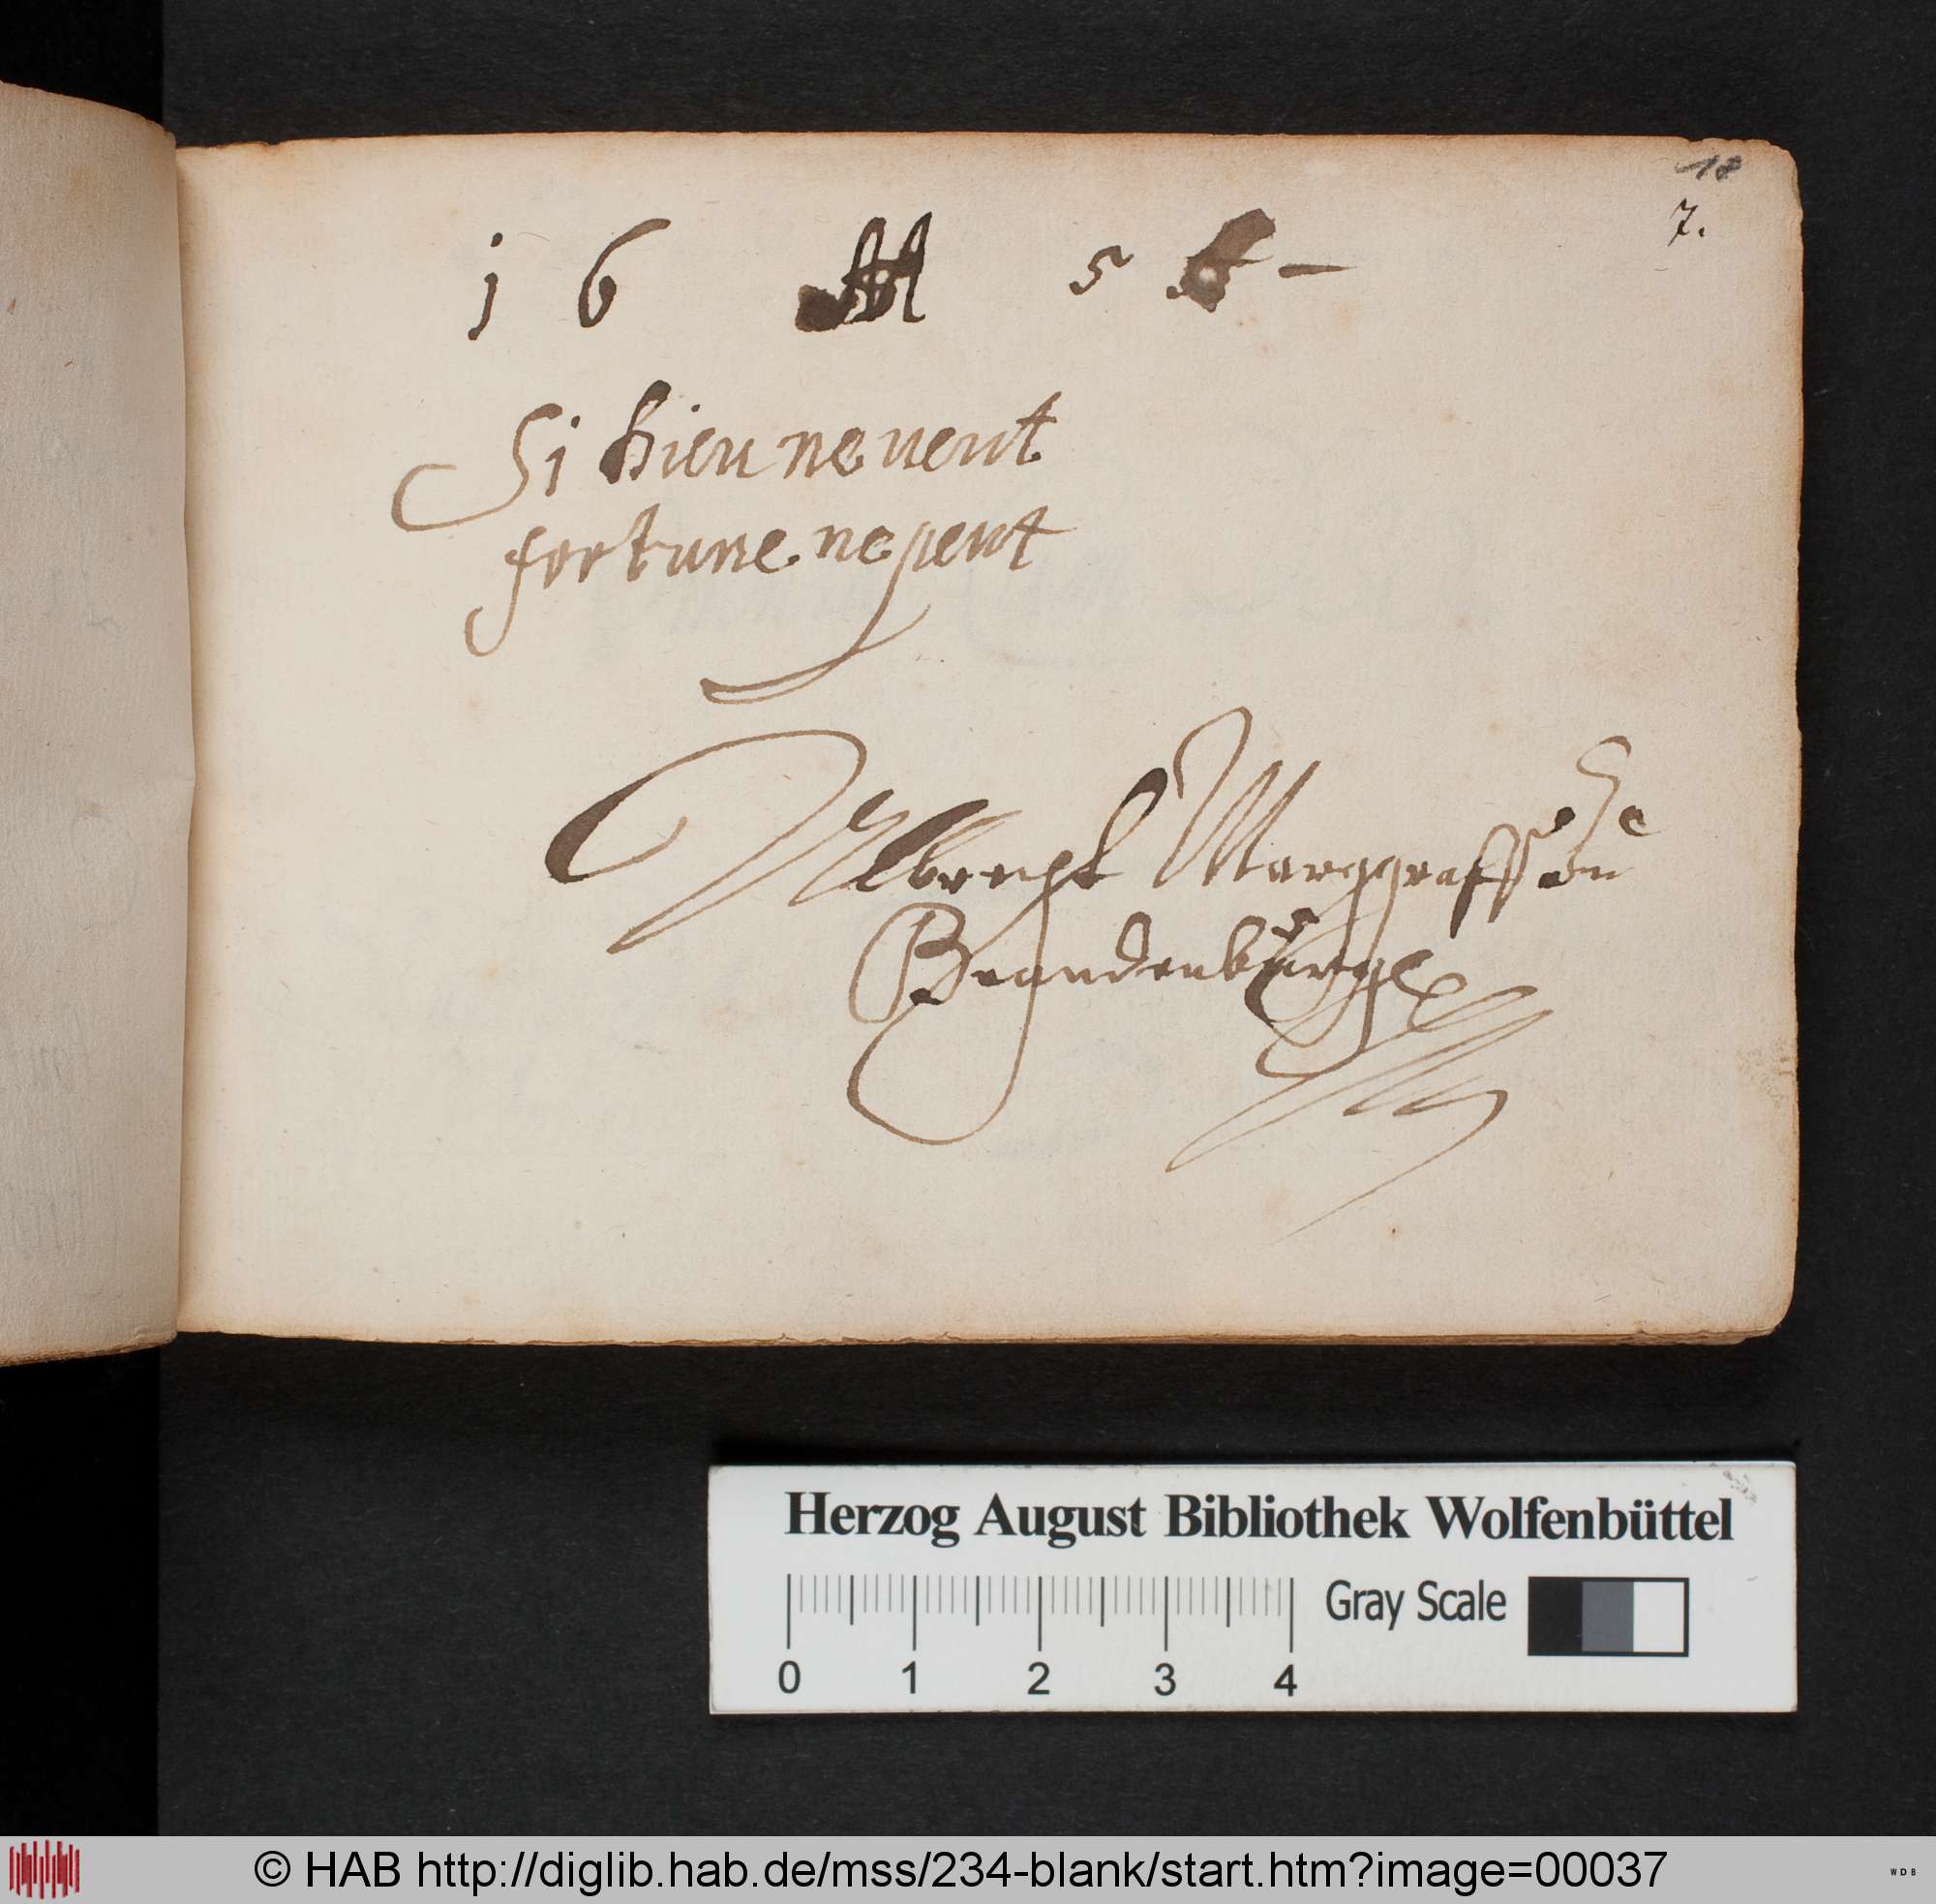 18
7.
16 5
Si Dieu ne veut
fortune ne peut
Albrecht Marggraff Zue
Brandenburg
Herzog August Bibliothek Wolfenbüttel
Gray Scale
0 1 2 3 4
© HAB http://diglib.hab.de/mss/234-blank/start.htm?image=00037
WDB